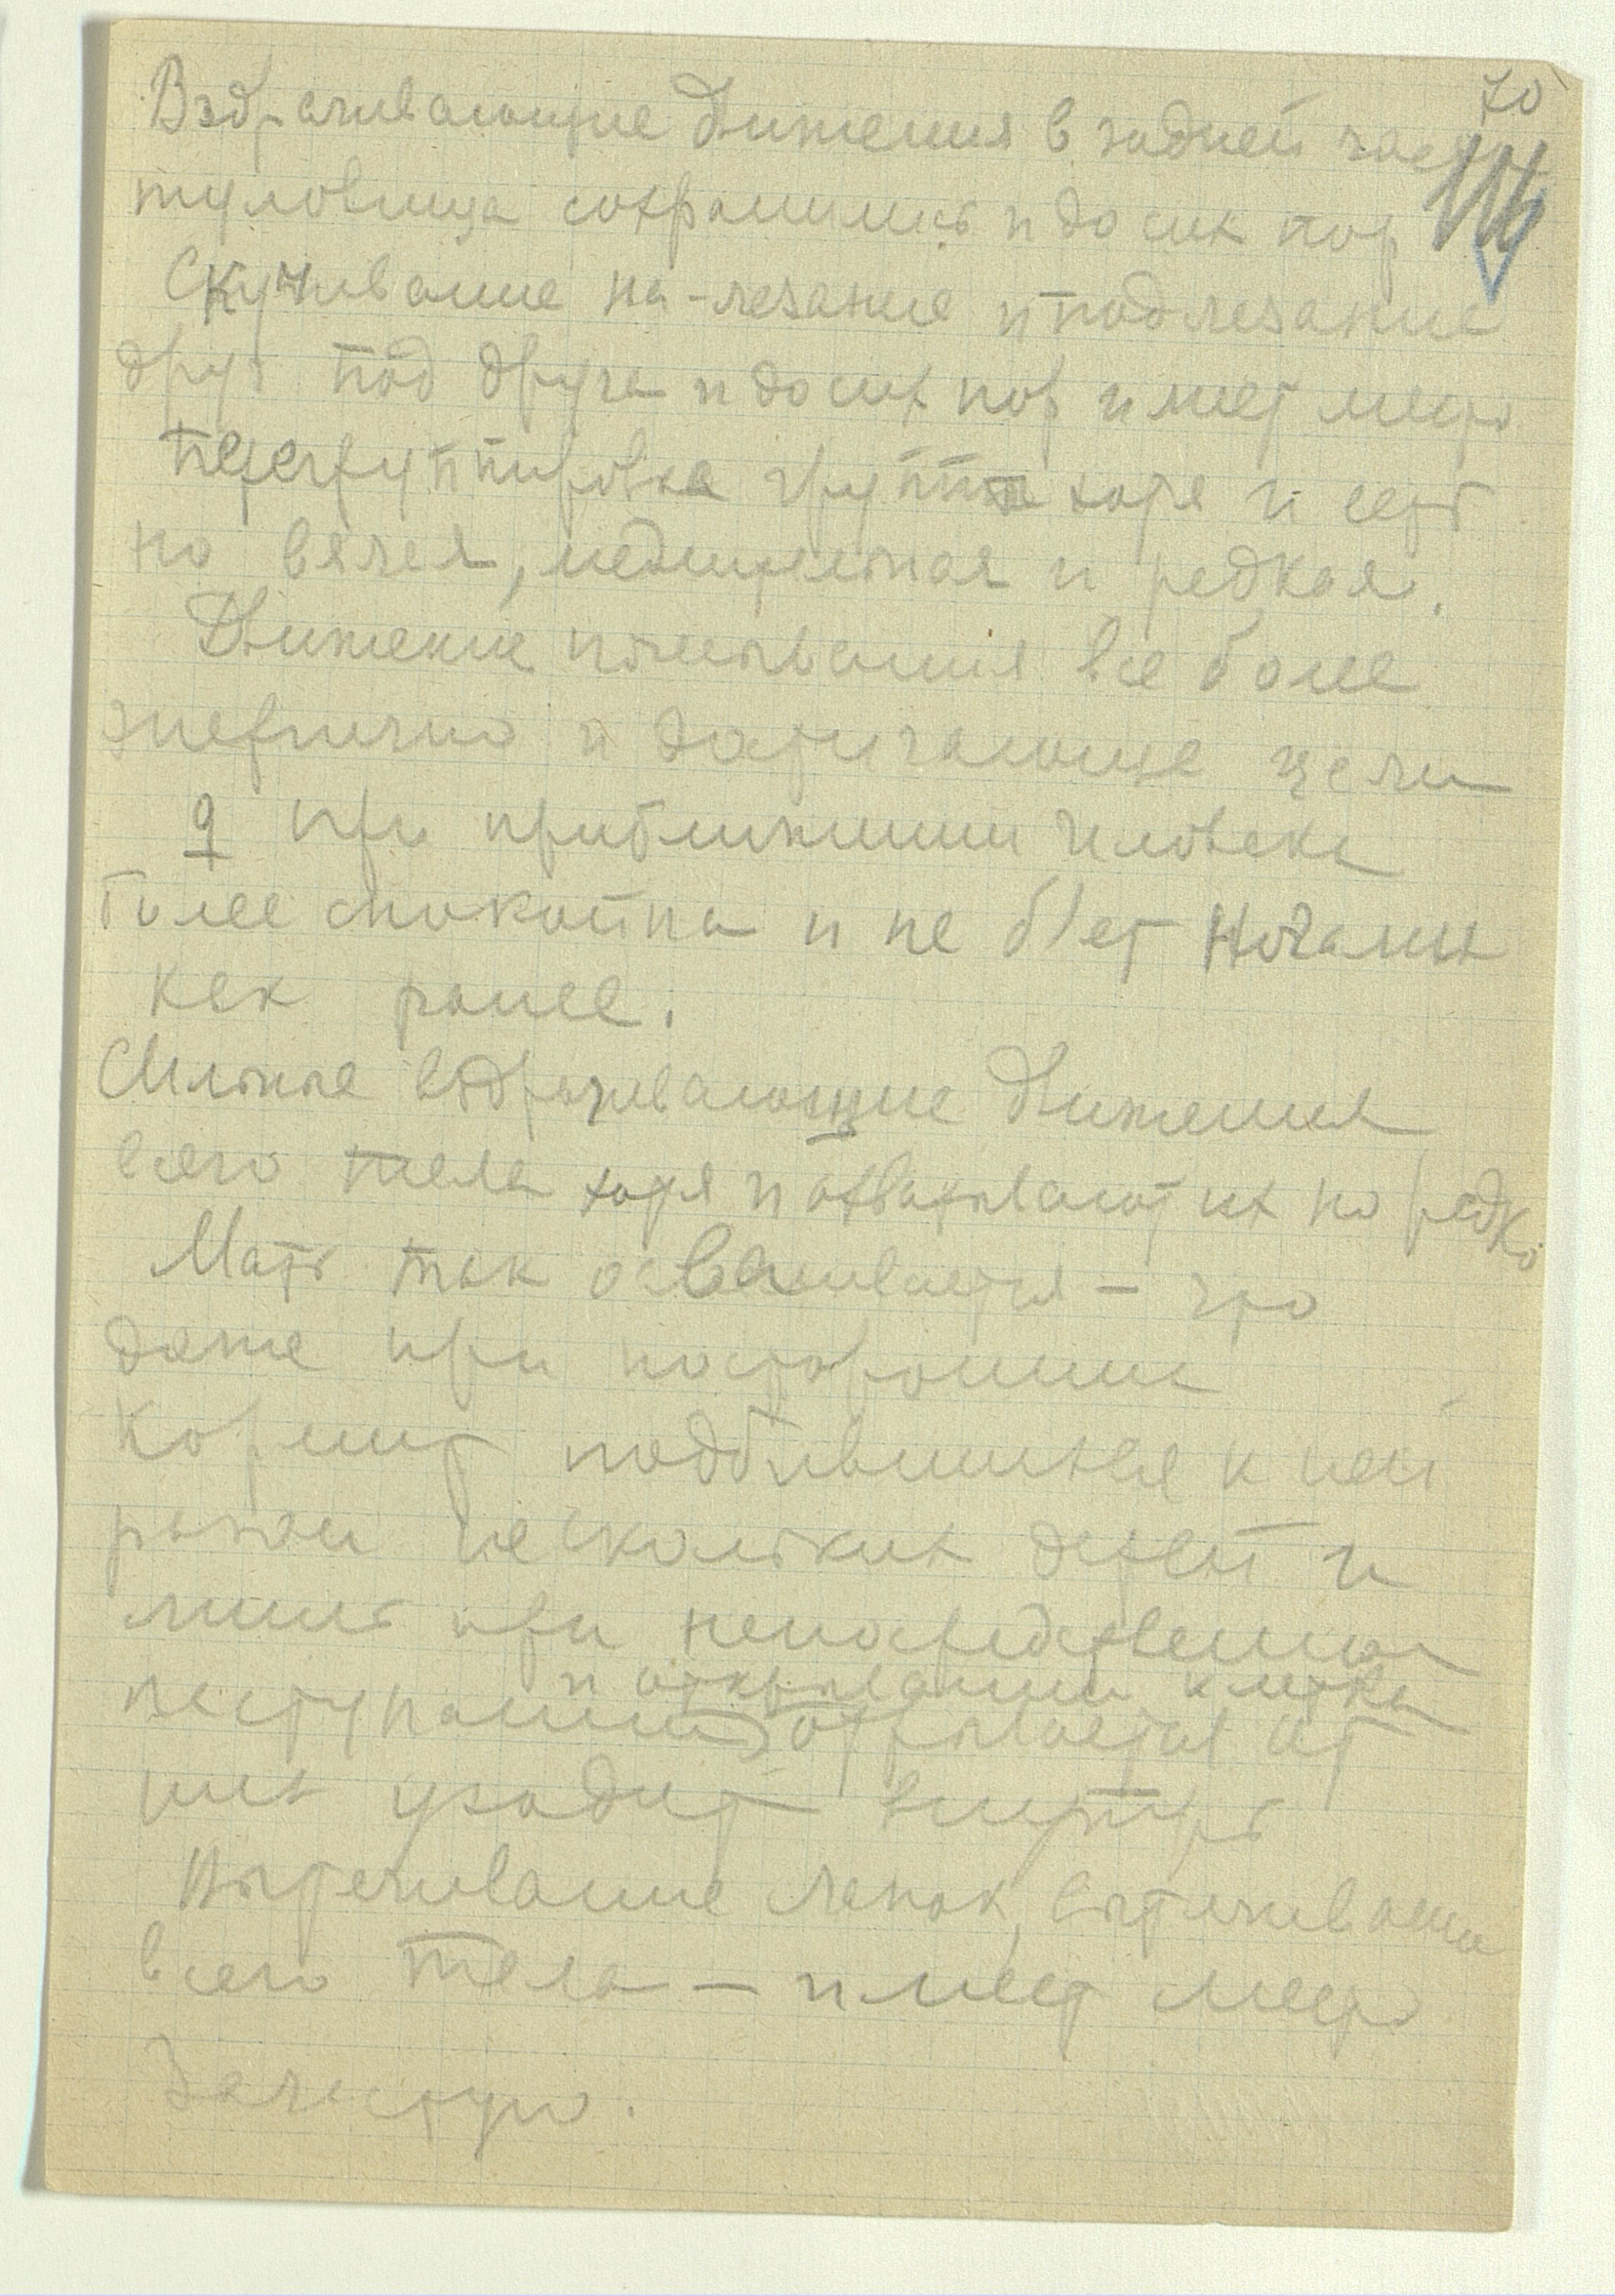 70
Вздрагивающие движения в задней части
туловища сохранились и до сих пор
Скучивание на-лезание и подлезание
друг под друга и до сих пор имеет место
перегруппировка группы хотя и есть
но вялая, медлительная и редкая.
Движение присасывания все более
энергично и достигающие цели
♀ при приближении человека
более спокойна и не бьет ногами
как ранее.
Сильные вздрагивающие движения
всего тела хотя и охватывают их но редко
Мать так осваивается – что
даже при посторонних
кормит подбившихся к ней
разом нескольких детей и
лишь при непосредственном
и открывании клетки
наступлении отрывается от
них уходит внутрь
Вытягивание лапок, вытягивание
всего тела – имеет место
Зачастую.